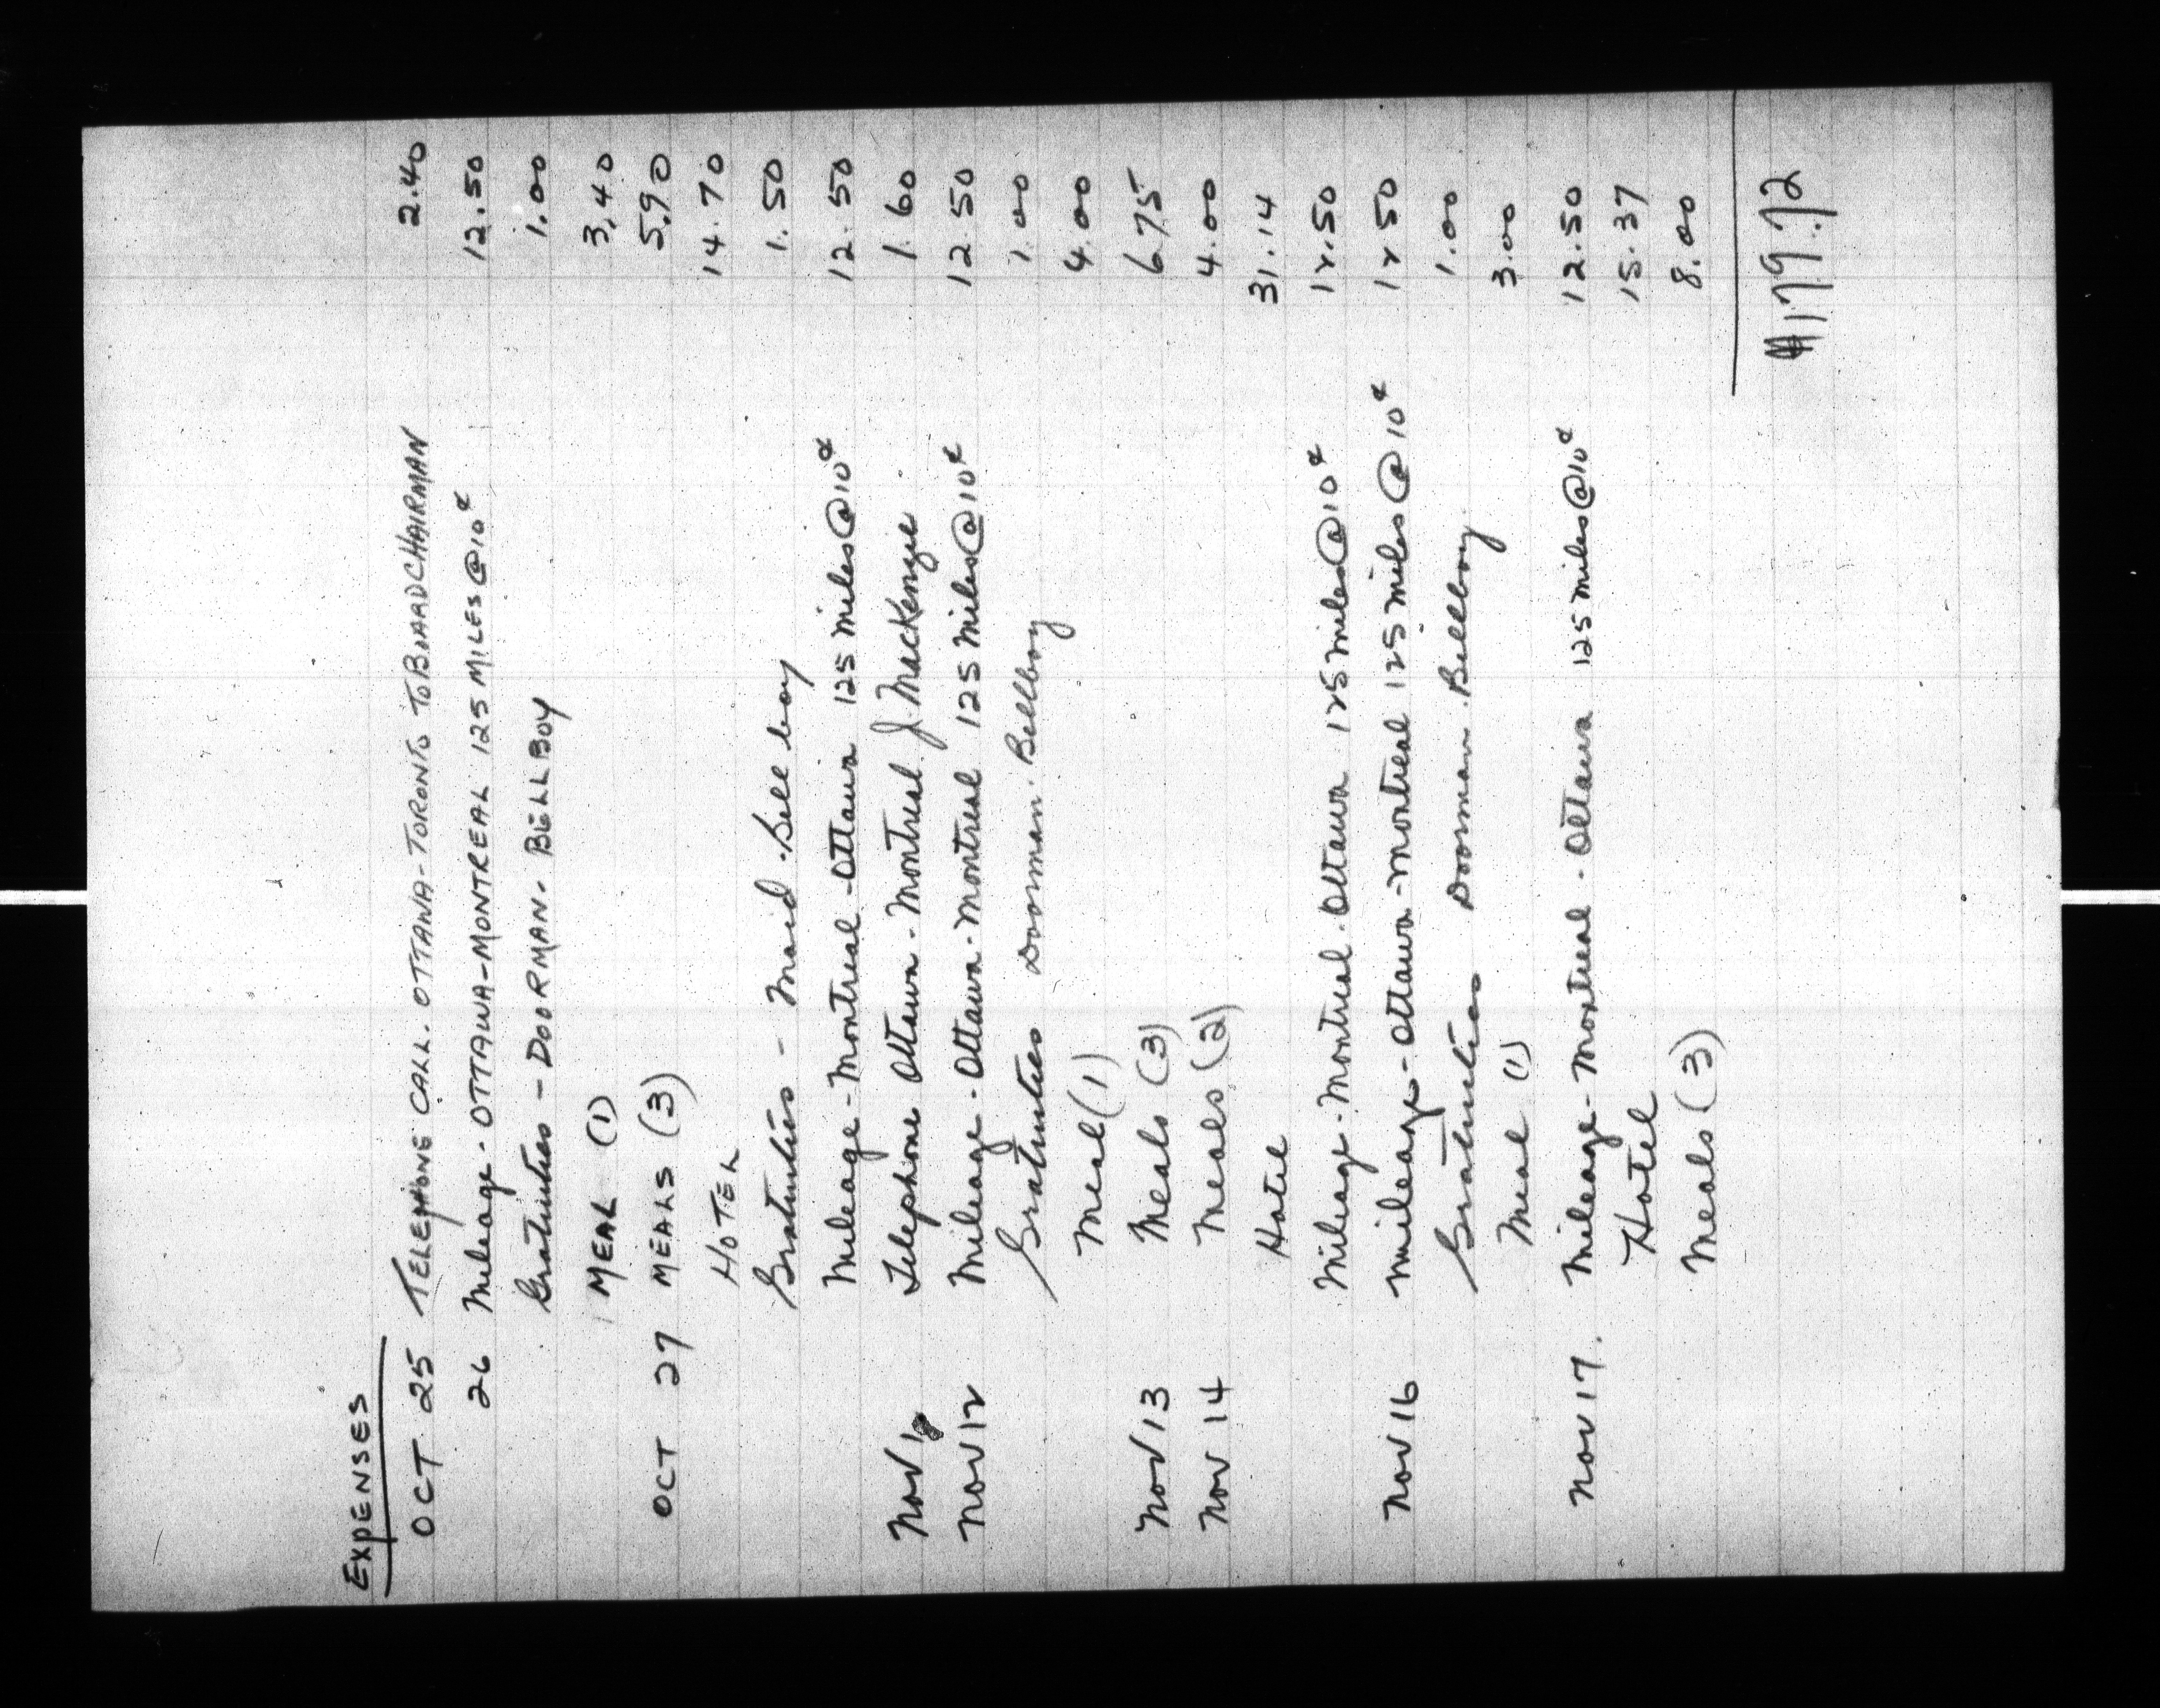 EXPENSES
OCT 25 TELEPHONE CALL. OTTAWA-TORONTO TO BOARD CHAIRMAN 2.40
26 Mileage - OTTAWA-MONTREAL 125 MILES @ 10¢ 12.50
Gratuities - DOORMAN. BELLBOY 1.00
MEAL (1) 3.40
OCT 27 MEALS (3) 5.90
HOTEL 14.70
Gratuities - Maid. Bell boy 1.50
Mileage - Montreal - Ottawa 125 miles @ 10¢ 12.50
Nov Telephone Ottawa - Montreal J. MacKenzie. 1.60
Nov 12 Mileage - Ottawa - Montreal 125 Miles @ 10¢ 12.50
Gratuities Doorman. Bellboy 1.00
Meal (1) 4.00
Nov 13 Meals (3) 6.75
Nov 14 Meals (2) 4.00
Hotel 31.14
Mileage - Montreal. Ottawa 125 Miles @ 10¢ 12.50
Nov 16 Mileage - Ottawa - Montreal 125 Miles @ 10¢ 12.50
Gratuities Doorman. Bellboy. 1.00
Meal (1) 3.00
Nov 17. Mileage - Montreal - Ottawa 125 Miles @ 10¢ 12.50
Hotel 15.37
Meals (3) 8.00
$179.72